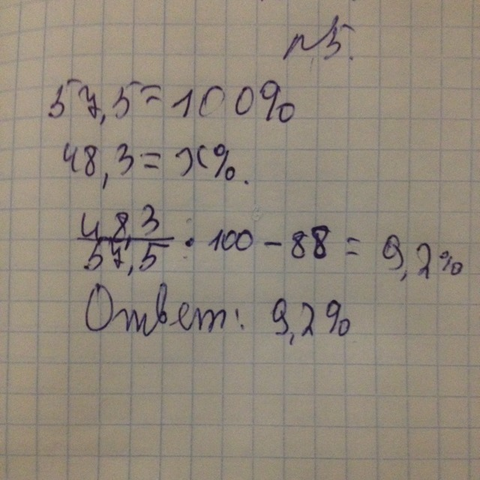 №5.
57,5 = 100%
48,3 = x%.
48,3/57,5 · 100 - 88 = 9,2%
Ответ: 9,2%